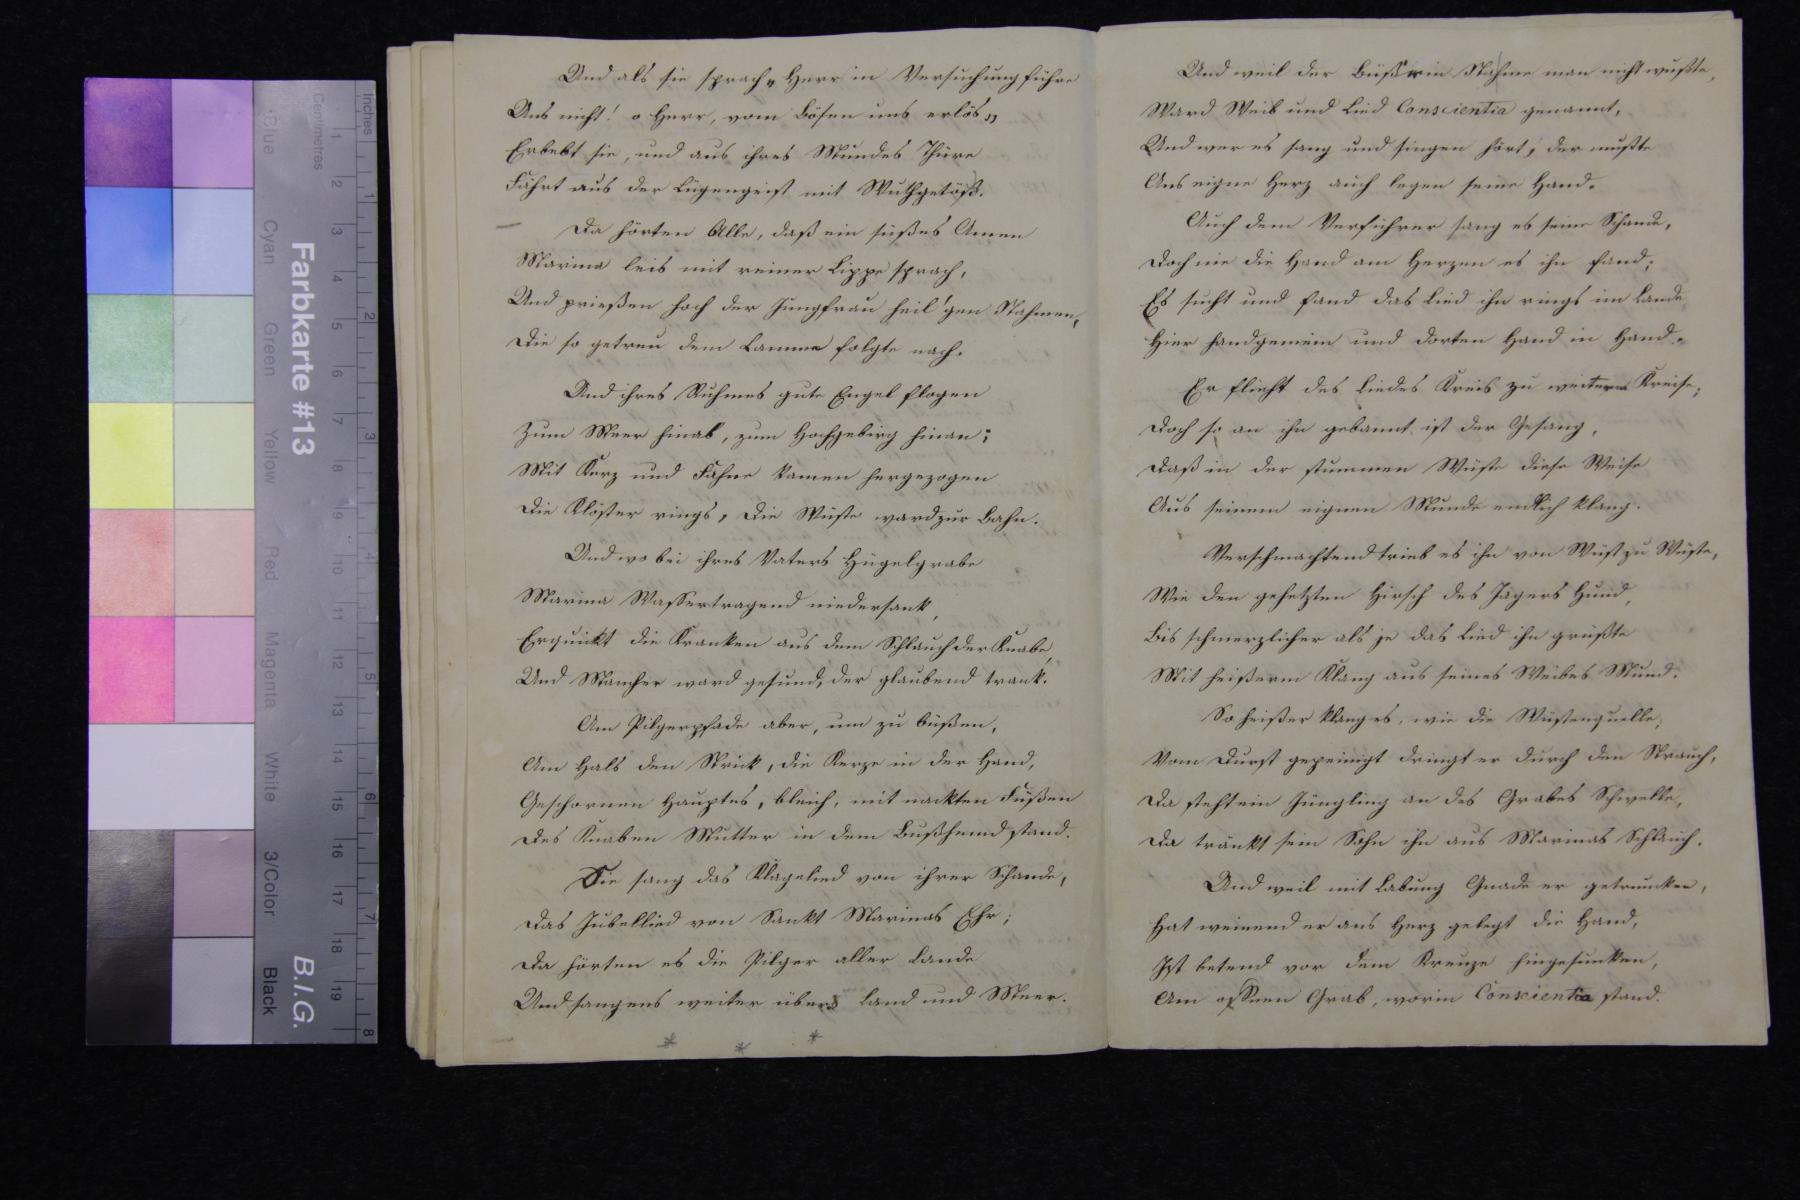 Und als sie sprach „Herr in Versuchung führe
Uns nicht! o Herr, vom Bösen uns erlös„
Erbebt sie, und aus ihres Mundes Thüre
Fährt aus der Lügengeist mit Wuthgetös.
Da hörten Alle, daß ein süßes Amen
Marina leis mit reiner Lippe sprach,
Und prießen hoch der Jungfrau heil'gen Nahmen,
Die so getreu dem Lamme folgte nach.
Und ihres Ruhmes gute Engel flogen
Zum Meer hinab, zum Hochgebirg hinan;
Mit Kerz und Fahne kamen hergezogen
Die Klöster rings, die Wüste ward zur Bahn.
Und wo bei ihres Vaters Hügelgrabe
Marina Wassertragend niedersank,
Erquickt die Kranken aus dem Schlauch der Knabe,
Und Mancher ward gesund, der glaubend trank.
Am Pilgerpfade aber, um zu büßen,
Am Hals den Strick, die Kerze in der Hand,
Geschornen Hauptes, bleich, mit nackten Füßen
Des Knaben Mutter in dem Bußhemd stand.
Sie sang das Klagelied von ihrer Schande,
Das Jubellied von Sankt Marinas Ehr;
Da hörten es die Pilger aller Lande
Und sangens weiter übers Land und Meer.
Und weil der Büßerin Nahme man nicht wußte,
Ward Weib und Lied Conscientia genannt,
Und wer es sang und singen hört, der mußte
Ans eigne Herz auch legen seine Hand.
Auch dem Verführer sang es seine Schande,
Doch nie die Hand am Herzen es ihn fand;
Es sucht und fand das Lied ihn rings im Lande
Hier handgemein und dorten Hand in Hand.
Er flieht des Liedes Kreis zu weiterm Kreise;
Doch so an ihn gebannt ist der Gesang,
Daß in der stummen Wüste diese Weise
Aus seinem eignen Munde endlich klang.
Verschmachtend trieb es ihn von Wüst zu Wüste,
Wie den gehetzten Hirsch des Jägers Hund,
Bis schmerzlicher als je das Lied ihn grüßte
Mit heißerm Klang aus seines Weibes Mund.
So heißer klang es, wie die Wüstenquelle,
Vom Durst gepeinigt dringt er durch den Strauch,
Da steht ein Jüngling an des Grabes Schwelle,
Da tränkt sein Sohn ihn aus Marinas Schlauch.
Und weil mit Labung Gnade er getrunken,
Hat weinend er ans Herz gelegt die Hand,
Ist betend vor dem Kreuze hingesunken,
Am offnen Grab, worin Conscientia stand.
Farbkarte #13
B.I.G.
Inches
Centimetres
Blue
Cyan
Green
Yellow
Red
Magenta
White
3/Color
Black
1 2 3 4 5 6 7 8 9 10 11 12 13 14 15 16 17 18 19
1 2 3 4 5 6 7 8